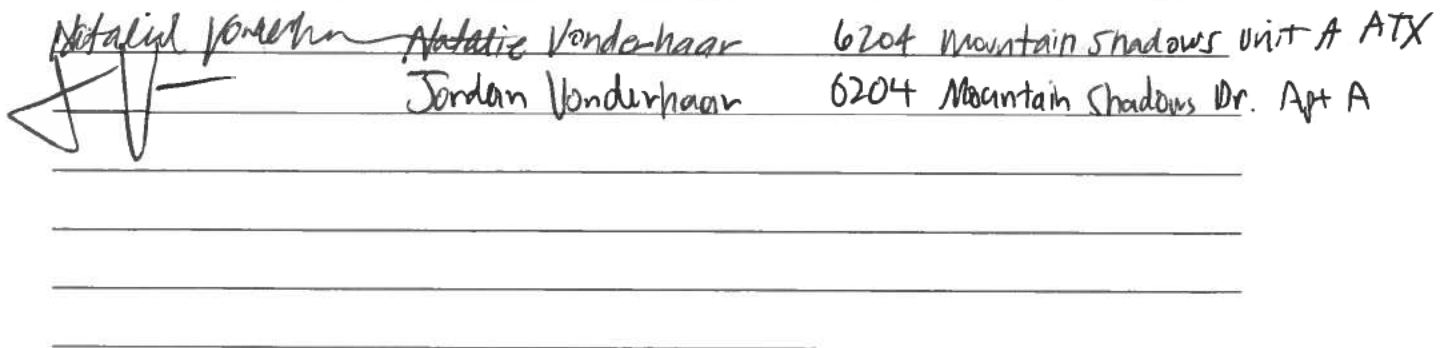 Natalie Vonderhaar 6204 Mountain Shadows Unit A ATX
Jordan Vonderhaar 6204 Mountain Shadows Dr. Apt A